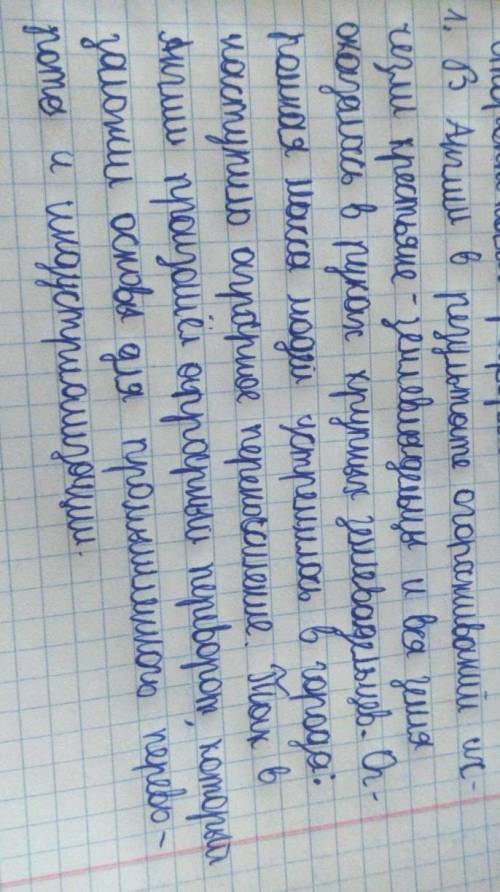 1, В Англии в результате огораживаний ис-
чезли крестьяне-землевладельцы и вся земля
оказалась в руках крупных землевладельцев. Ог-
ромная масса людей устремилась в города:
наступило аграрное перенаселение. Так в
Англии произошёл аграрный переворот, который
заложил основы для промышленного перево-
рота и индустриализации.